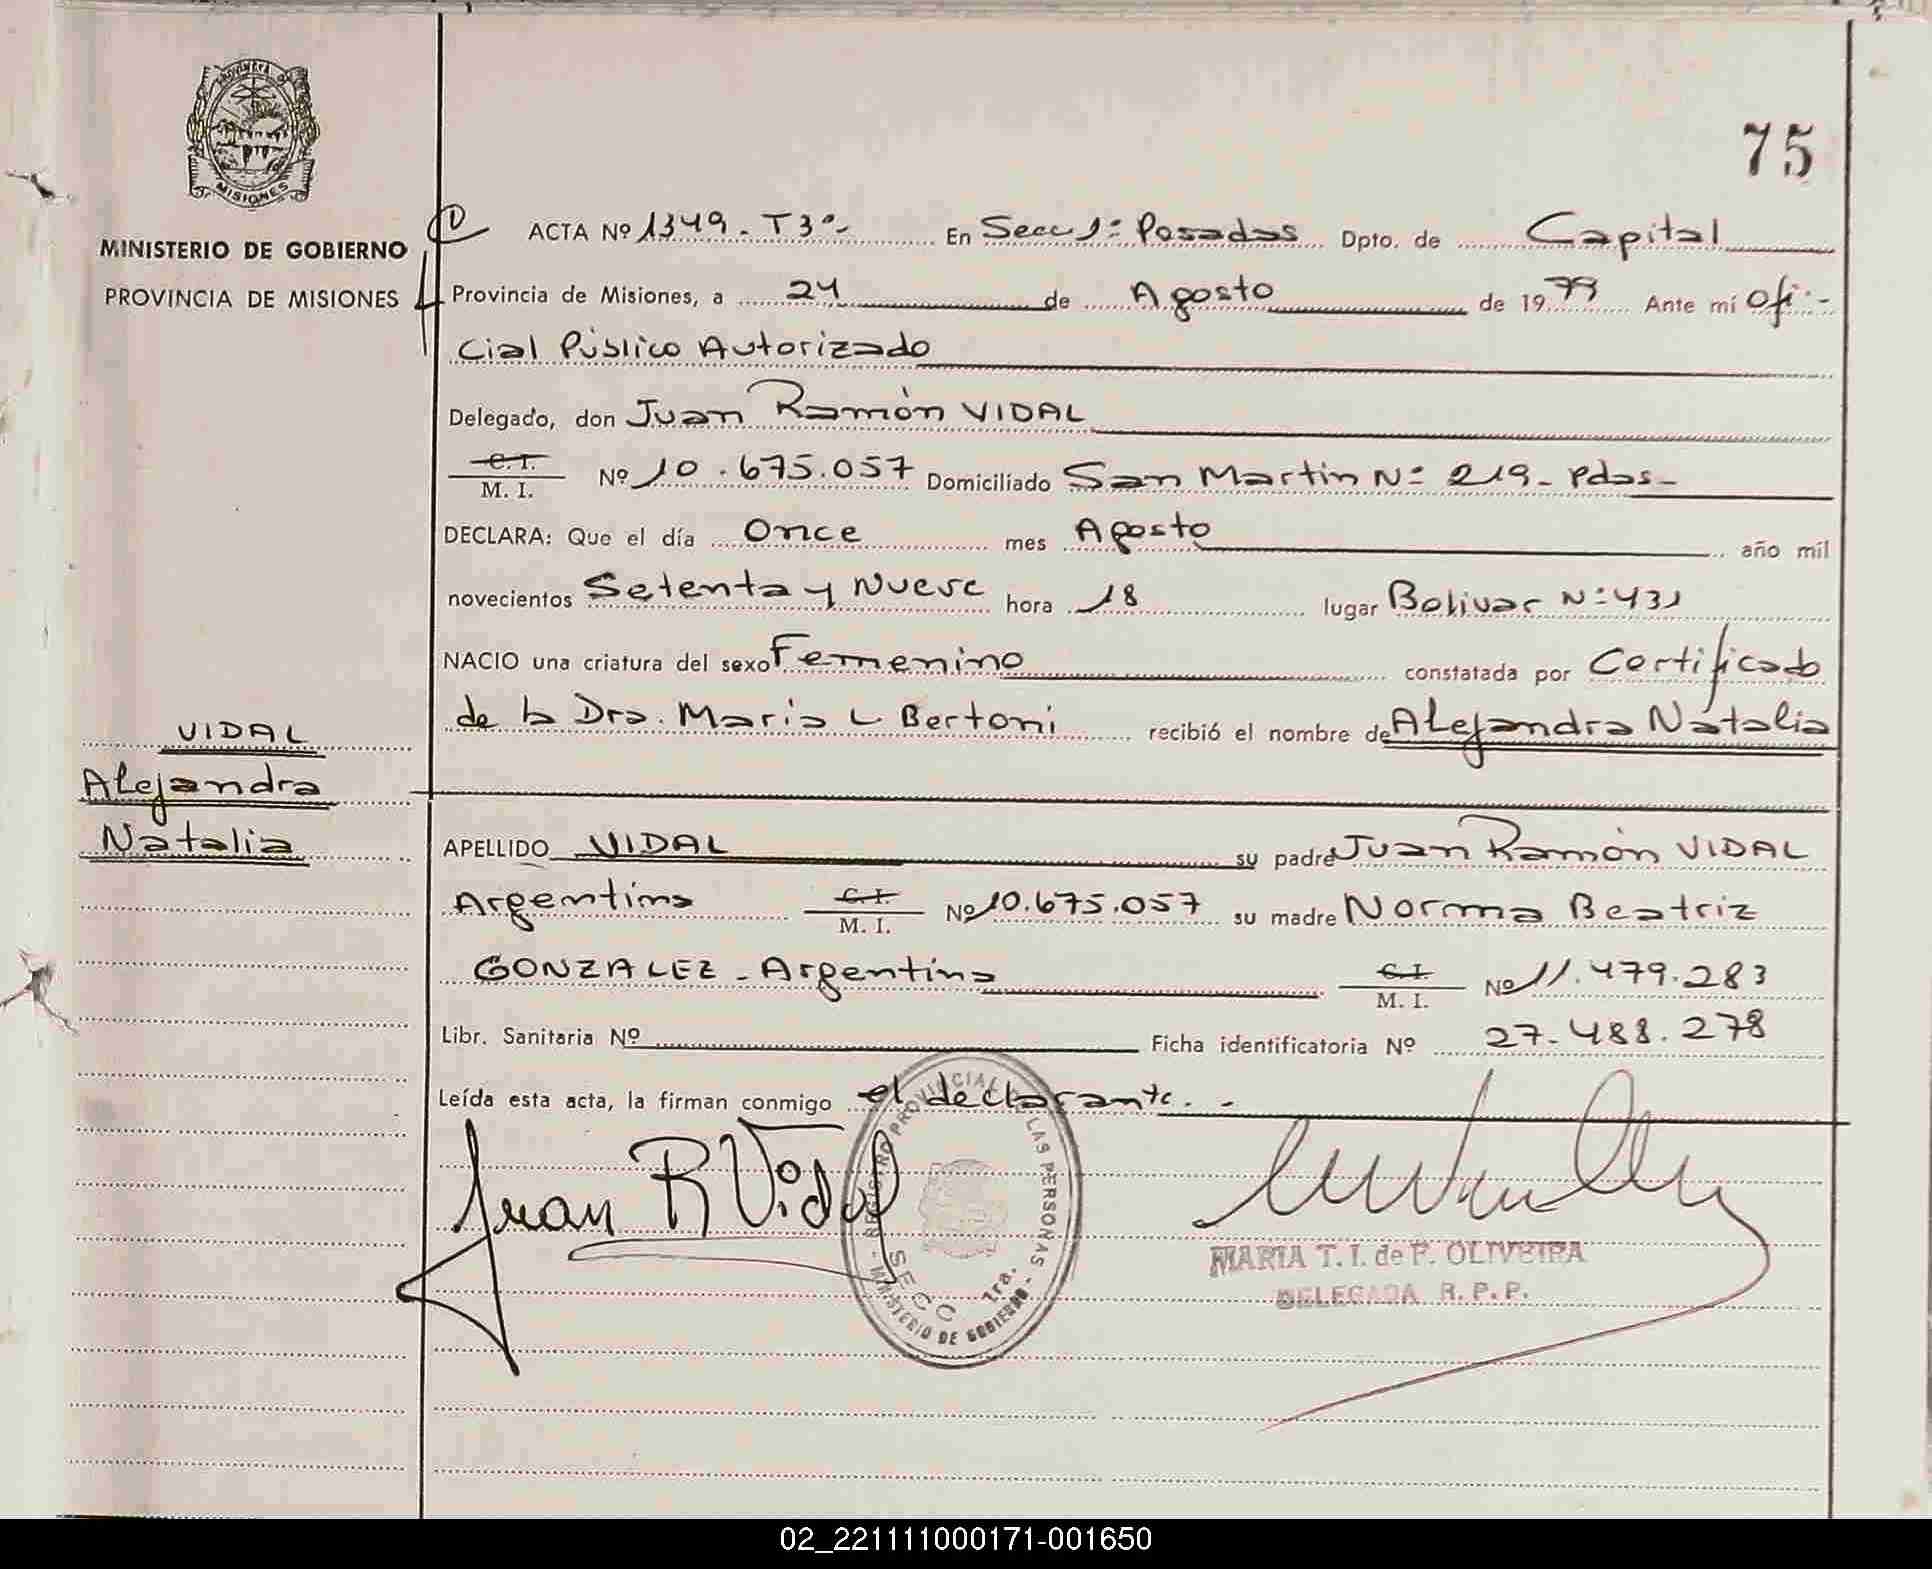 PROVINCIA DE
MISIONES
MINISTERIO DE GOBIERNO
PROVINCIA DE MISIONES
75
ACTA Nº 1349. T3º- En Secc 1ª Posadas Dpto. de Capital
Provincia de Misiones, a 24 de Agosto de 1979 Ante mí Ofi-
cial Público Autorizado
Delegado, don Juan Ramón VIDAL
C.I.
M. I. Nº 10.675.057 Domiciliado San Martin Nº 219- Pdas-
DECLARA: Que el día Once mes Agosto año mil
novecientos Setenta y Nueve hora 18 lugar Bolivar Nº 431
NACIO una criatura del sexo Femenino constatada por Certificado
de la Dra. Maria L. Bertoni recibió el nombre de Alejandra Natalia
VIDAL
Alejandra
Natalia
APELLIDO VIDAL su padre Juan Ramón VIDAL
Argentino C.I.
M. I. Nº 10.675.057 su madre Norma Beatriz
GONZALEZ - Argentina C.I.
M. I. Nº 11.479.283
Libr. Sanitaria Nº Ficha identificatoria Nº 27.488.278
Leída esta acta, la firman conmigo el declarante. -
Juan R Vidal
REGISTRO PROVINCIAL DE LAS PERSONAS
SECC 1ra.
- MINISTERIO DE GOBIERNO -
MARIA T. I. de P. OLIVEIRA
DELEGADA R. P. P.
02_221111000171-001650